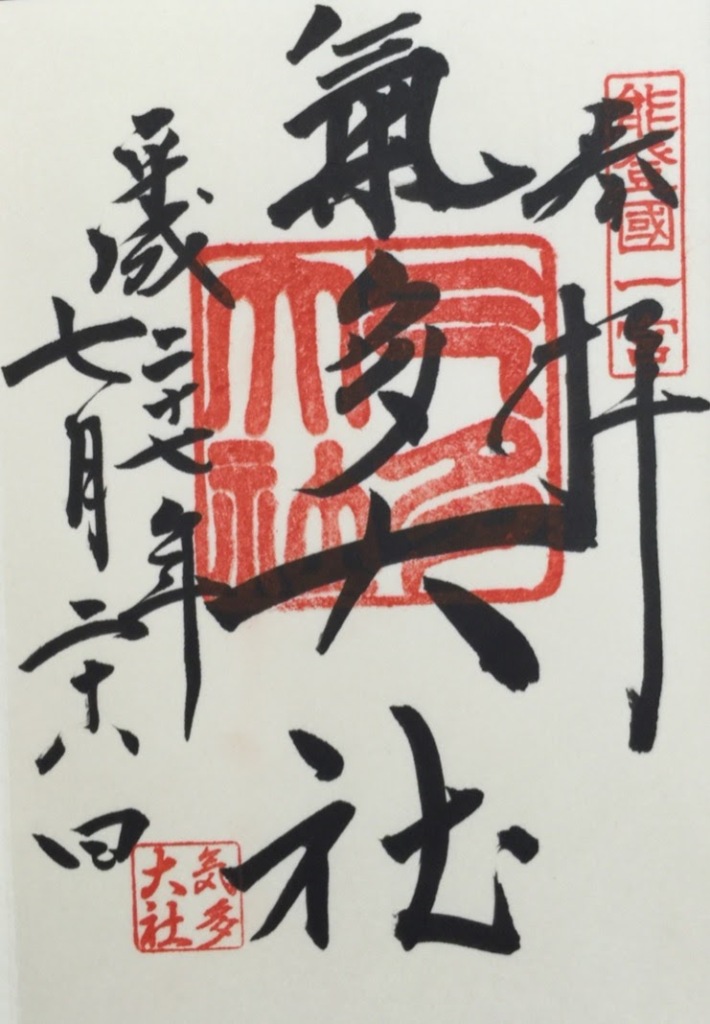 能登國一宮
奉拝
氣多大社
気多大社
平成二十七年
七月二十八日
気多
大社